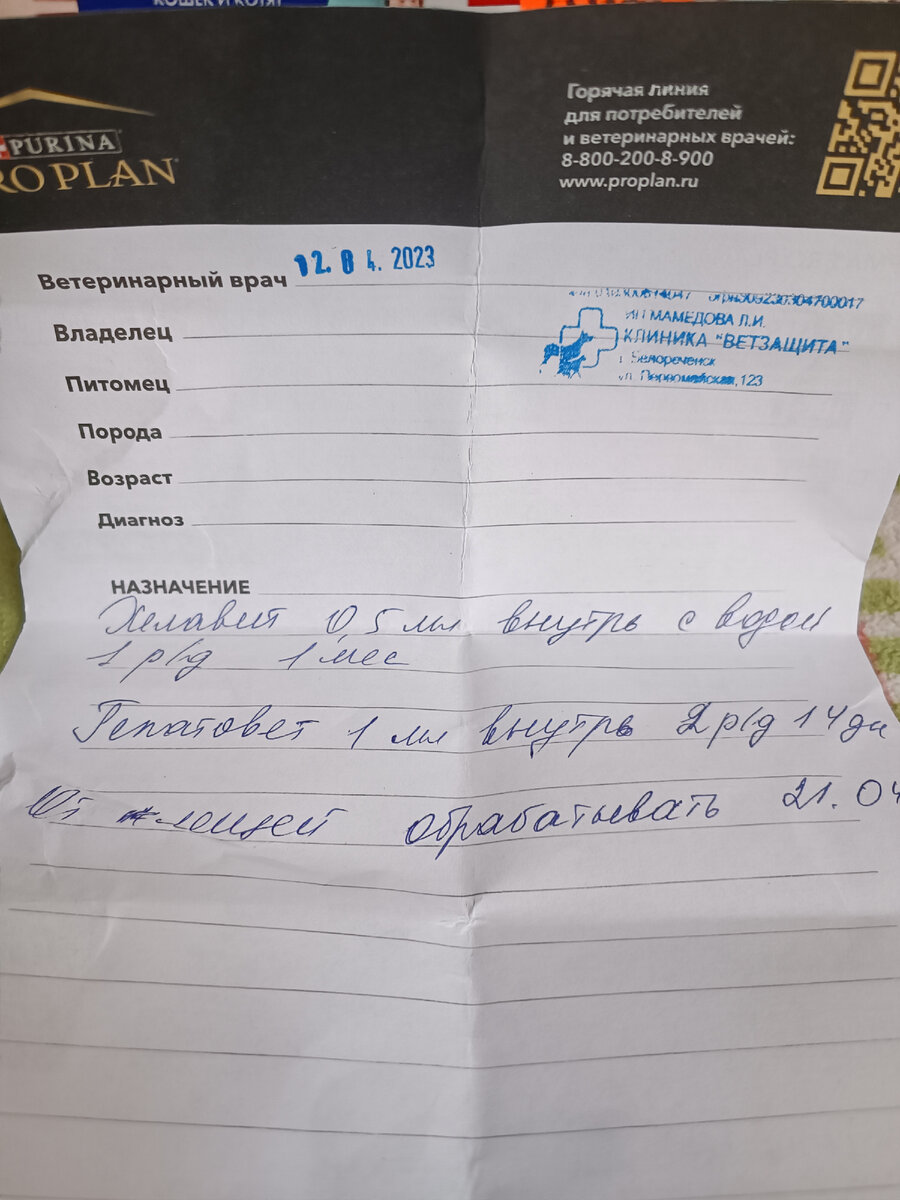 КОШЕК И КОТЯТ
PURINA
RO PLAN
Горячая линия
для потребителей
и ветеринарных врачей:
8-800-200-8-900
www.proplan.ru
Ветеринарный врач 12.04.2023
ИП МАМЕДОВА Л.И.
КЛИНИКА "ВЕТЗАЩИТА"
г. Белореченск
ул. Первомайская, 123
Владелец
Питомец
Порода
Возраст
Диагноз
НАЗНАЧЕНИЕ
Хелавит 0,5 мл внутрь с водой
1 р/д 1 мес
Гепатовет 1 мл внутрь 2 р/д 14 дн
От клещей обрабатывать 21.04